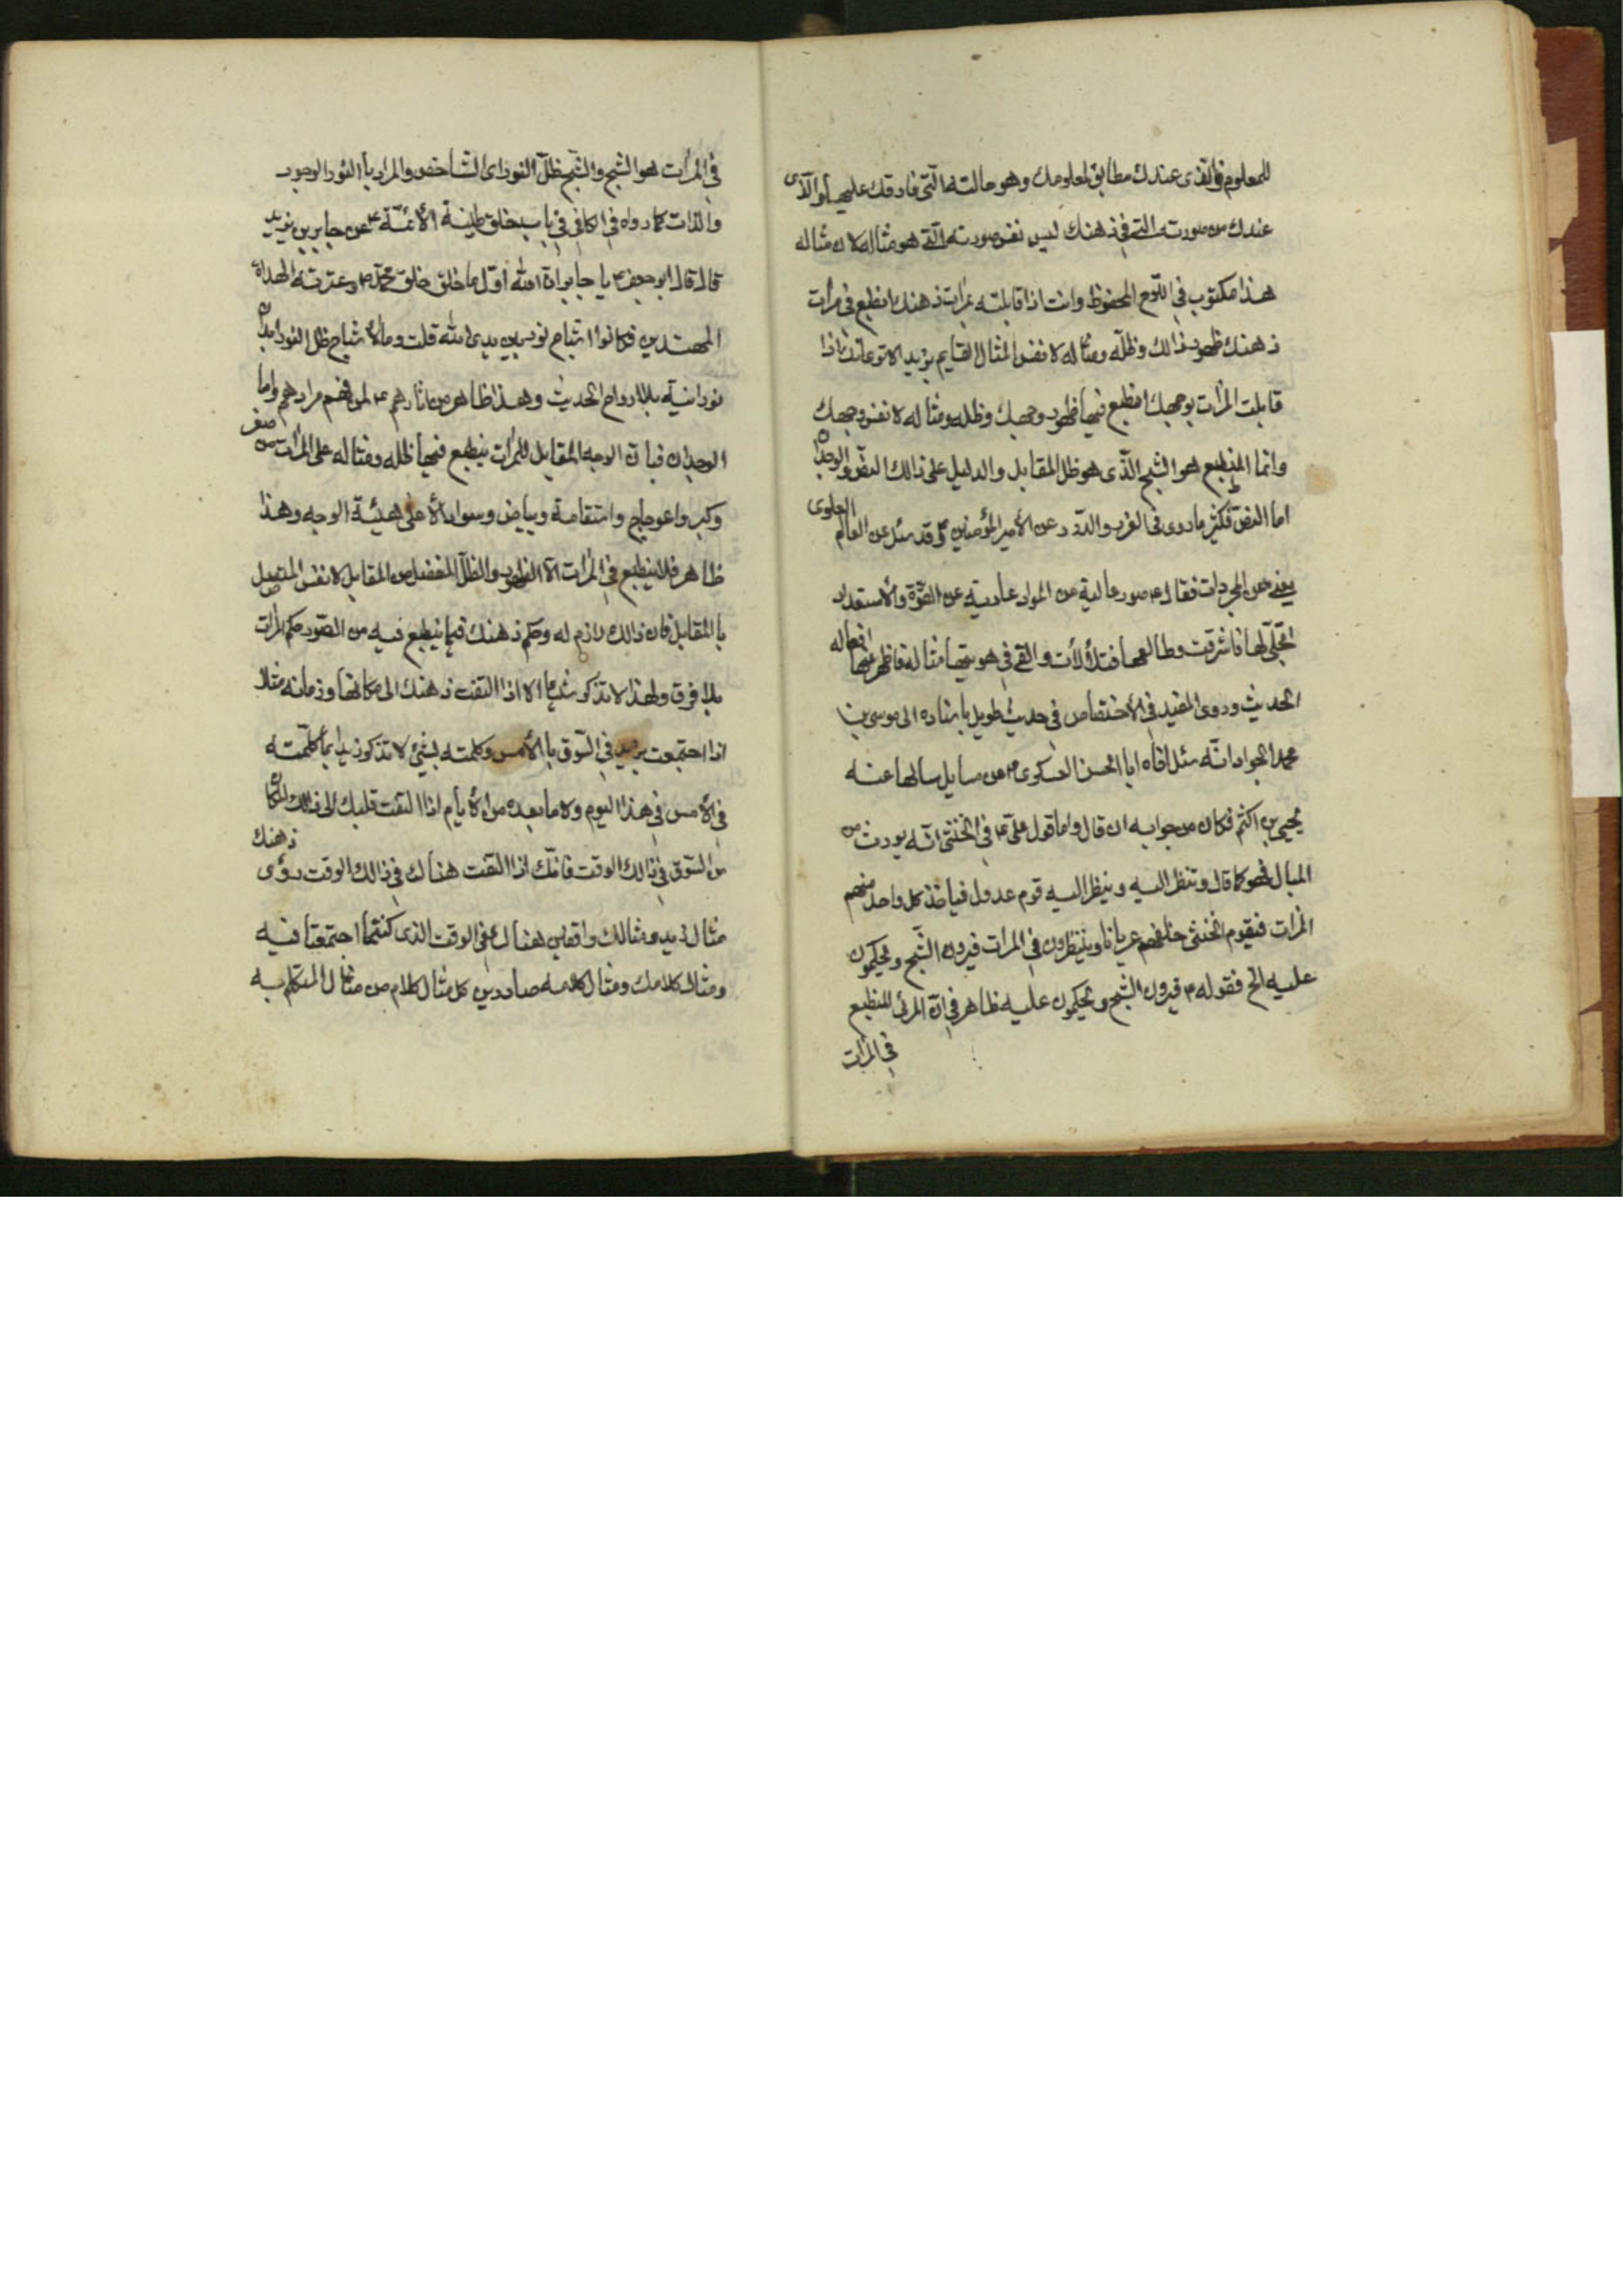 للمعلوم فالذى عندك مطابق لمعلومك وهو حالته التى فارقك عليها والذى
عندك من صورته التى فى ذهنك ليس نفس صورته التى هو مثاله لان مثاله
هذا مكتوب فى اللوح المحفوظ وانت اذا قابلته بمرات ذهنك انطبع فى مرات
ذهنك ظهور ذالك وظله ومثاله لا نفس المثال القايم بزيد الا ترى انك اذا
قابلت المرات بوجهك انطبع فيها ظهور وجهك وظله ومثاله لا نفس وجهك
وانما المنطبع هو الشبح الذى هو ظل المقابل والدليل على ذالك النص والوجدان
اما النص فكثير ما روى فى الغرر والدرر عن الأمير المؤمنين ع وقد سئل عن العالم العلوى
يعنى عن المجردات فقال ع صور عالية عن المواد عارية عن القوة والأستعداد
تجلى لها فاشرقت وطالعها فتلألأت والقى فى هويتها مثاله فاظهر عنها افعاله
الحديث وروى المفيد فى الأختصاص فى حديث طويل باسناده الى موسى بن
محمد الجواد انه سئل اخاه ابا الحسن العسكرى ع عن مسايل سالها عنه
يحيى بن اكثم فكان من جوابه ان قال واما قول على ع فى الخنثى انه يورث من
المبال فهو كما قال وتنظر اليه وينظر اليه قوم عدول فياخذ كل واحد منهم
المرات فيقوم الخنثى خلفهم عريانا وينظرون فى المرات فيرون الشبح ويحكمون
عليه الخ فقوله ع فيرون الشبح ويحكمون عليه ظاهر فى ان المرئى المنطبع
فى المرات
فى المرات هو الشبح والشبح ظل النور اى الشاخص والمراد بالنور الوجود
والذات كما رواه فى الكافى فى باب خلق طينة الأئمة ع عن جابر بن يزيد
قال قال ابو جعفر ع يا جابر ان الله اول ما خلق خلق محمد ص وعترته الهداة
المهتدين فكانوا اشباح نور بين يدى الله قلت وما الأشباح قال ظل النور ابدان
نورانية بلا ارواح الحديث وهذا ظاهر من اثارهم ع لمن فهم مرادهم واما
الوجدان فبان الوجه المقابل للمرات ينطبع فيها ظله ومثاله على المرات من صغر
وكبر واعوجاج واستقامة وبياض وسواد لا على هيئة الوجه وهذا
ظاهر فلا ينطبع فى المرات الا الظهور والظل المنفصل من المقابل لا نفس المتصل
بالمقابل فان ذالك لازم له وحكم ذهنك فيما ينطبع فيه من الصور حكم المرات
بلا فرق ولهذا لا تذكر شيئا الا اذا التفت ذهنك الى مكانها وزمانه مثلا
اذا اجتمعت بزيد فى السوق بالأمس وكلمته لبشئ لا تذكر زيدا بما كلمته
فى الأمس فى هذا اليوم ولا ما بعده من الأيام اذا التفت قلبك الى ذالك المكان
من السوق فى ذالك الوقت فانك اذا التفت هناك فى ذالك الوقت رؤى ذهنك
مثال زيد ومثالك واقفين هناك فى الوقت الذى كنتما اجتمعتما فيه
ومثال كلامك ومثال كلامه صادرين كل مثال كلام من مثال المتكلم به